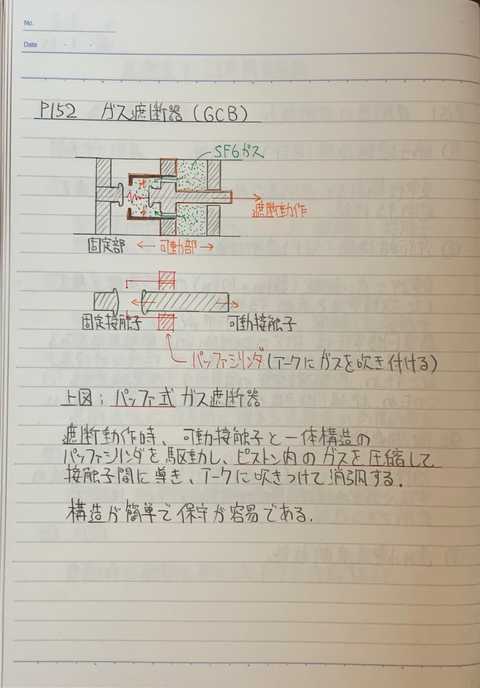 No.
Date
P152 ガス遮断器(GCB)
SF6ガス
遮断動作
固定部 ← 可動部 →
固定接触子 可動接触子
パッファシリンダ(アークにガスを吹き付ける)
上図; パッファ式ガス遮断器
遮断動作時、可動接触子と一体構造の
パッファシリンダを駆動し、ピストン内のガスを圧縮して
接触子間に導き、アークに吹きつけて消弧する.
構造が簡単で保守が容易である.